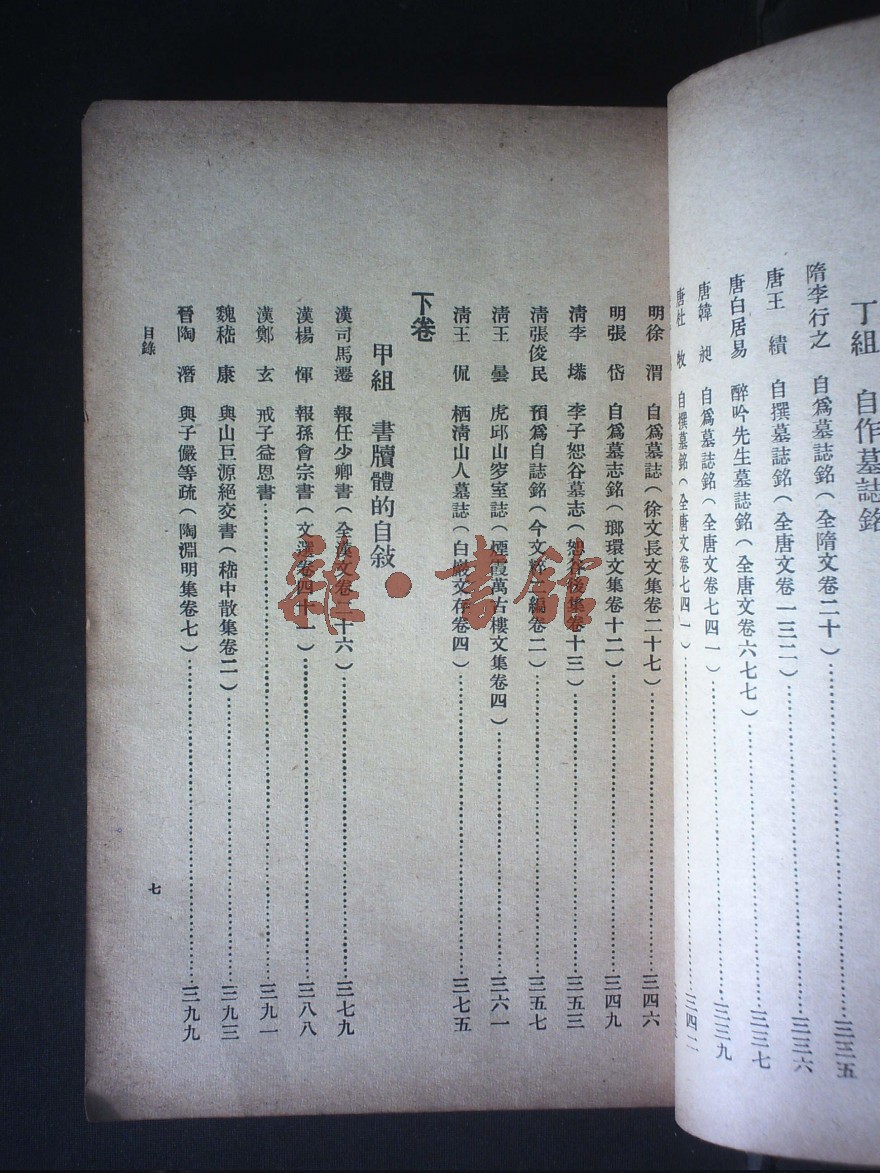 丁組　自作墓誌銘
隋李行之　自爲墓誌銘（全隋文卷二十）……三三五
唐王　績　自撰墓誌銘（全唐文卷一三二）……三三六
唐白居易　醉吟先生墓誌銘（全唐文卷六七七）……三三七
唐韓　昶　自爲墓誌銘（全唐文卷七四一）……三三九
唐杜　牧　自撰墓銘（全唐文卷七四一）……三四二
明徐　渭　自爲墓誌（徐文長文集卷二十七）……三四六
明張　岱　自爲墓志銘（瑯環文集卷十二）……三四九
清李　塨　李子恕谷墓志（恕谷後集卷十三）……三五三
清張俊民　預爲自誌銘（今文粹二編卷二）……三五七
清王　曇　虎邱山穸室誌（煙霞萬古樓文集卷四）……三六一
清王　侃　栖淸山人墓誌（白巌文存卷四）……三七五
下卷
甲組　書牘體的自敍
漢司馬遷　報任少卿書（全漢文卷二十六）……三七九
漢楊　惲　報孫會宗書（文選卷四十一）……三八八
漢鄭　玄　戒子益恩書……三九一
魏嵇　康　與山巨源絕交書（嵇中散集卷二）……三九三
晉陶　潛　與子儼等疏（陶淵明集卷七）……三九九
目錄
七
雜·書館